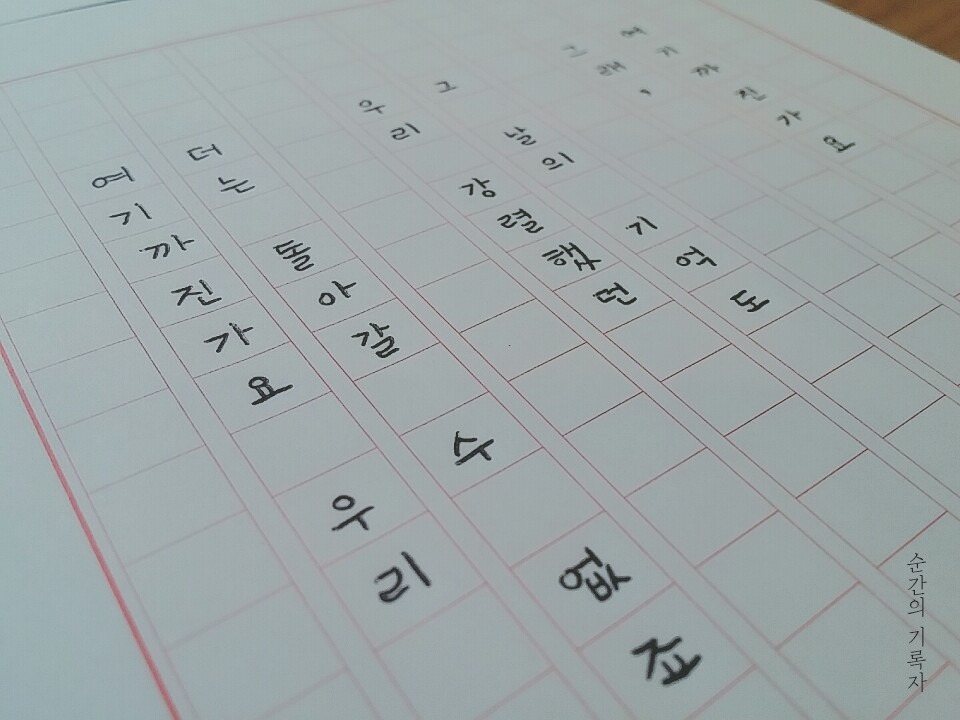 여기까진가요 우리
더는 돌아갈 수 없죠
우리 강렬했던
그 날의 기억도
그래,
여기까진가요
순간의 기록자